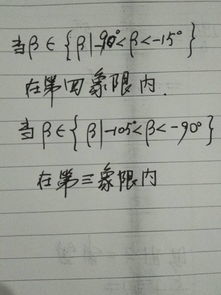 当β∈{β|-90°<β<-15°}
在第四象限内.
当β∈{β|-105°<β<-90°}
在第三象限内